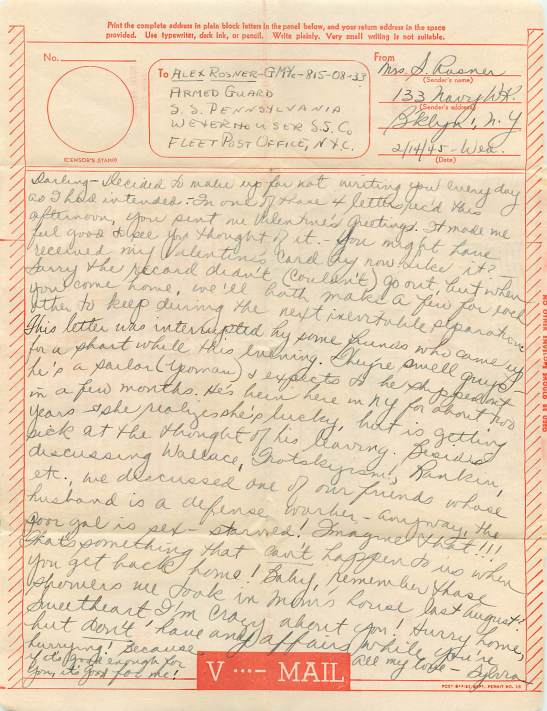 Print the complete address in plain block letters in the panel below, and your return address in the space
provided. Use typewriter, dark ink, or pencil. Write plainly. Very small writing is not suitable.
No.
(CENSOR'S STAMP)
To ALEX ROSNER-GM 815-08-33
ARMED GUARD
S.S. PENNSYLVANIA
WEYERHOUSER S.S. CO
FLEET POST OFFICE, N.Y.C.
From
Mrs. S. Rosner
(Sender's name)
133 Navy Wk.
(Sender's address)
B'klyn 1, N.Y
2/14/45-Wed.
(Date)
Darling- Decided to make up for not writing you everyday
as I had intended. In one of those 4 letters rec'd this
afternoon, you sent me Valentine's Greetings. It made me
feel good to see you thought of it.- You might have
received my Valentine's Card by now - like it? -
Sorry the record didn't (couldn't) go out, but when
you come home, we'll both make a few for each
other to keep during the next inevitable separation.
This letter was interrupted by some friends who came up
for a short while this evening. They're swell guys-
he's a sailor (Yoeman) & expects to be shipped out
in a few months. He's been here in NY for about two
years & she realizes she's lucky, but is getting
sick at the thought of his leaving. Besides
discussing Wallace, Trotskyism, Rankin,
etc., we discussed one of our friends whose
husband is a defense worker- anyway, the
poor gal is sex-starved! Imagine that!!!
That's something that can't happen to us when
you get back home! Baby, remember those
showers we took in Mom's house last August?
Sweetheart I'm crazy about you! Hurry home,
but don't have any affairs while you're
hurrying! Because All my love- Sylvia
if it's good enough for
you, it's good for me!
V ···- MAIL
POST OFFICE DEPT. PERMIT NO.